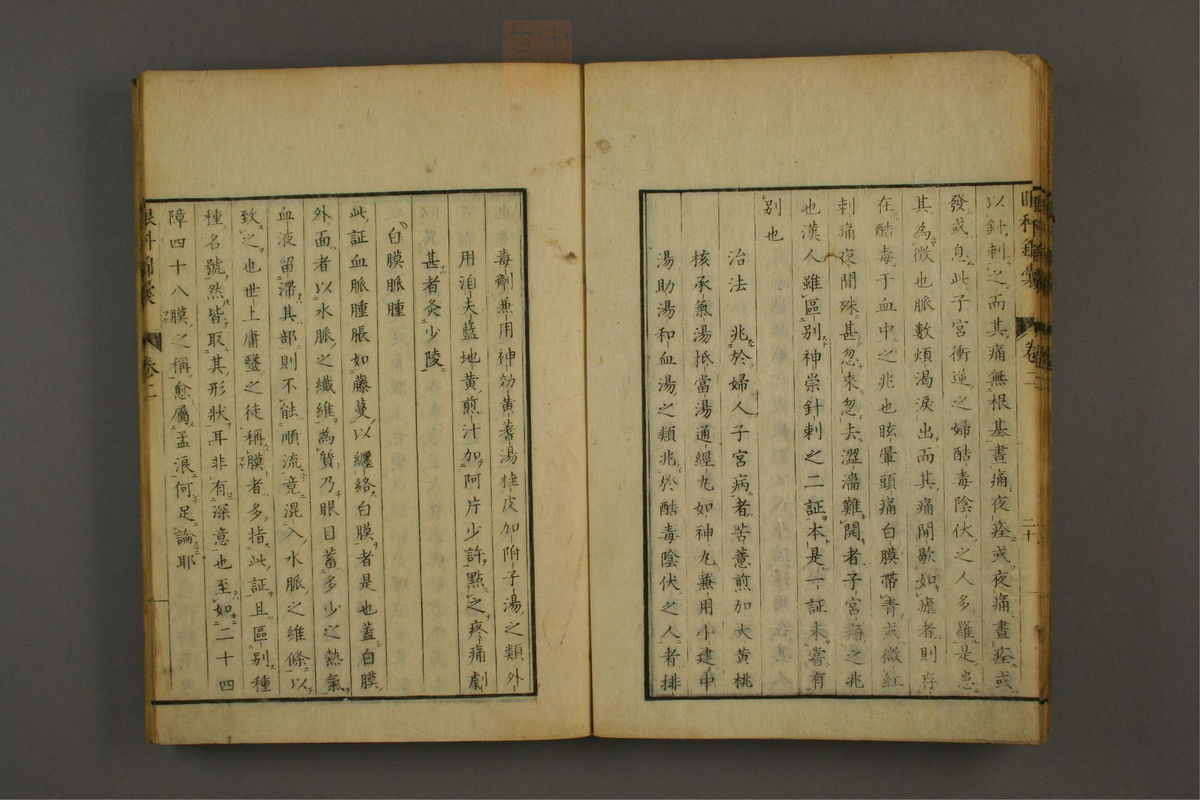 眼科錦囊 卷二 二十
以針刺之而其痛無根基晝痛夜痊或夜痛晝痊或
發或息此子宮衝逆之婦酷毒陰伏之人多羅是患
其為徵也脈數煩渴淚出而其痛間歇如瘧者則存
在酷毒于血中之兆也眩暈頭痛白膜帶青或微紅
刺痛夜間殊甚忽來忽去澀濇難開者子宮痗之兆
也漢人雖區別神祟針刺之二証本是一証未嘗有
別也
治法 兆於婦人子宮病者苦薏煎加大黃桃
核承氣湯抵當湯通經丸如神丸兼用小建中
湯助湯和血湯之類兆於酷毒陰伏之人者排
毒劑兼用神効黃蓍湯桂皮加附子湯之類外
用洎夫藍地黃煎汁加阿片少許點之疼痛劇
甚者灸少陵
白膜脈腫
此証血脈腫脹如藤蔓以纏絡白膜者是也蓋白膜
外面者以水脈之纖維為質乃眼目蓄多少之熱氣
血液留滯其部則不能順流竟混入水脈之維條以
致之也世上庸醫之徒稱膜者多指此証且區別種
種名號然皆取其形狀耳非有深意也至如二十四
障四十八膜之稱愈屬孟浪何足論耶
眼科錦囊 卷二